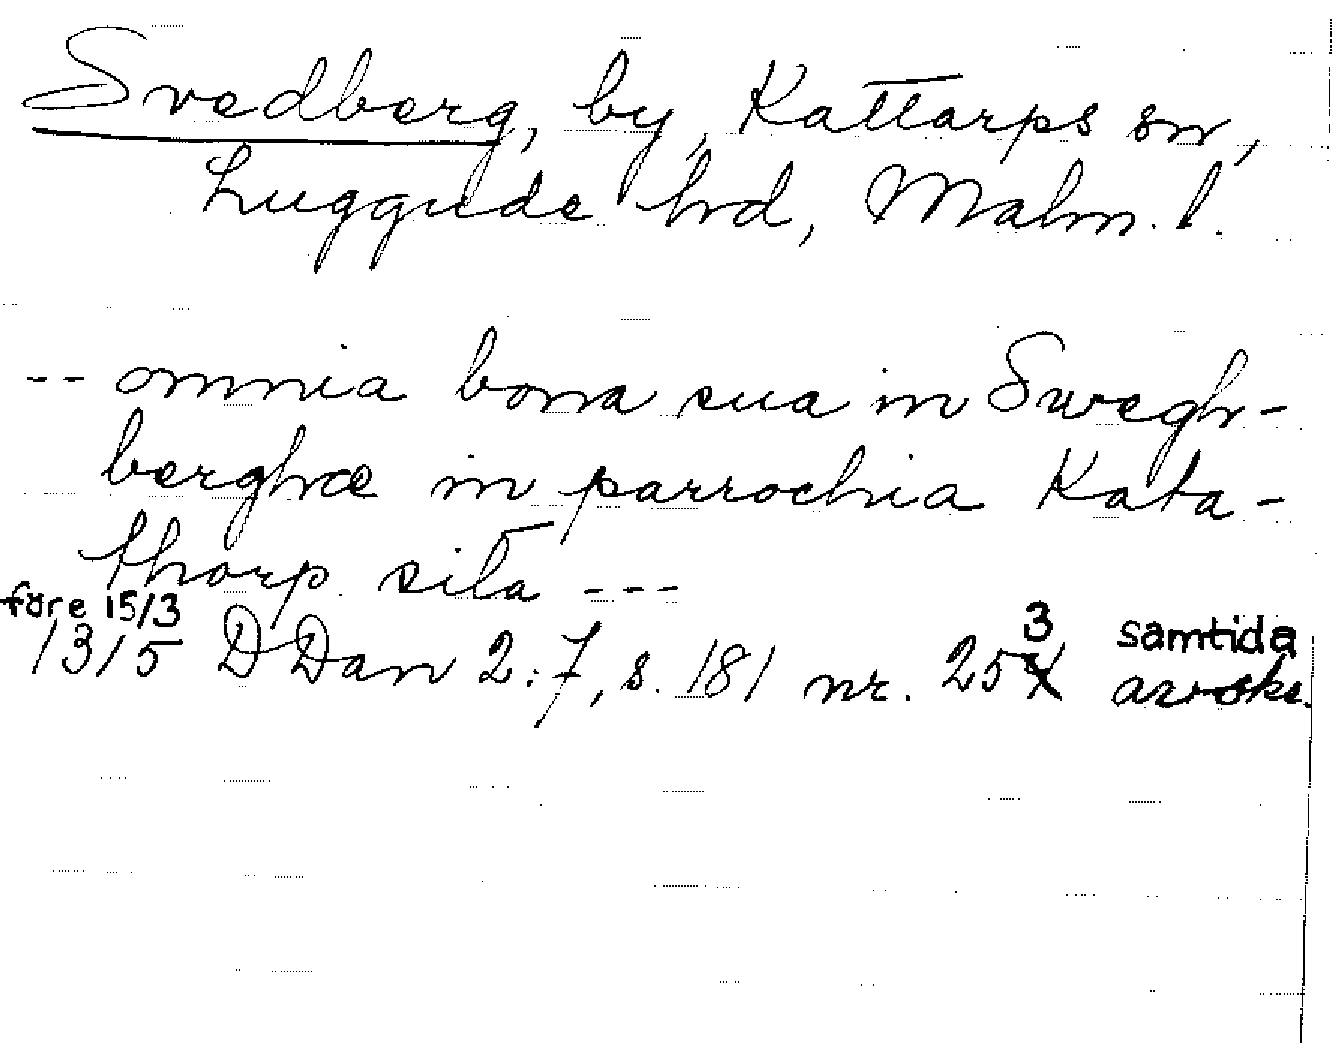 Svedberg, by, Kattarps sn,
Luggude hrd, Malm. l.
-- omnia bona sua in Swegh-
berghæ in parrochia Kata-
thorp sita ---
före 15/3
1315 DDan 2:7, s. 181 nr. 253 samtida
avskr.